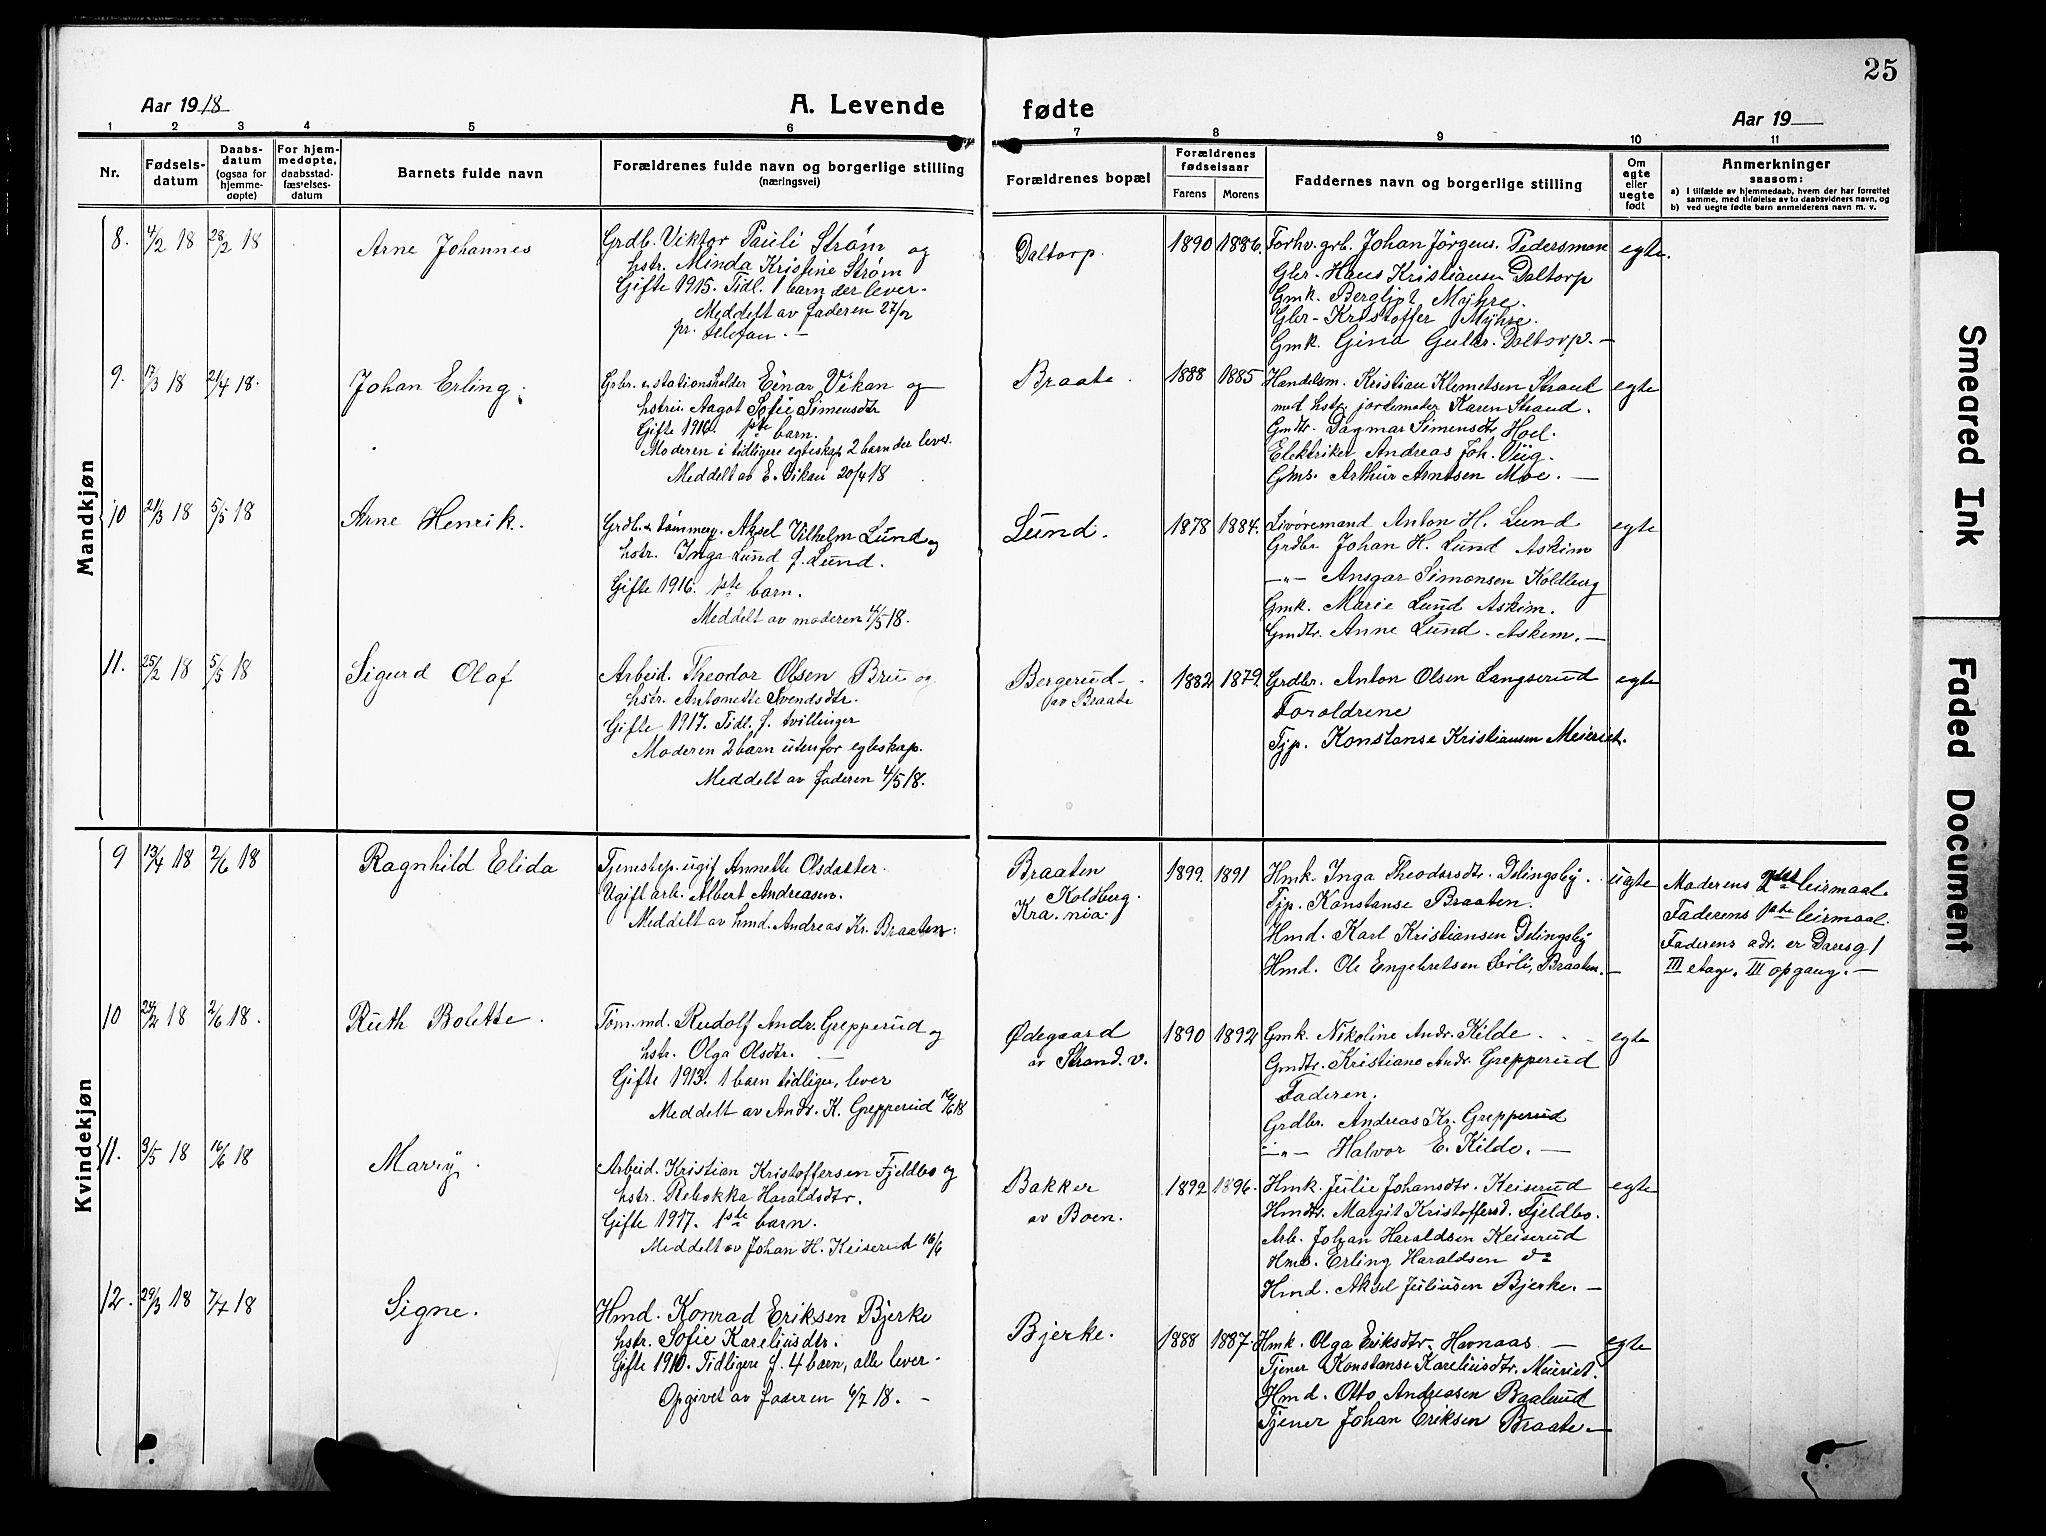 25
Aar 1918
A. Levende fødte
Aar 19
1 2 3 4 5 6 7 8 9 10 11
Nr.
Fødsels-
datum
Daabs-
datum
(ogsaa for
hjemme-
døpte)
For hjem-
medøpte,
daabsstad-
fæstelses-
datum
Barnets fulde navn
Forældrenes fulde navn og borgerlige stilling
(næringsvei)
Forældrenes bopæl
Forældrenes
fødselsaar
Farens Morens
Faddernes navn og borgerlige stilling
Om
egte
eller
uegte
født
Anmerkninger
saasom:
a) I tilfælde av hjemmedaab, hvem der har forrettet
samme, med tilføielse av to daabsvidners navn, og
b) ved uegte fødte barn anmelderens navn m. v.
Mandkjøn
8. 4/2 18 28/2 18
Arne Johannes
Grdb. Viktor Pauli Strøm og
hstr. Minda Kristine Strøm
Gifte 1915. Tidl. 1 barn der lever.
Meddelt av faderen 27/2
pr. telefon. —
Daltorp.
1890 1886.
Forhv. grb. Johan Jørgens. Pedersmoen
Gbr. Hans Kristiansen Daltorp
Gmk. Bergljot Myhre.
Gbr. Kristoffer Myhre.
Gmk. Gina Gulbr. Daltorp. —
egte.
9. 17/3 18 21/4 18.
Johan Erling.
Grbr. & stationsholder Einar Vikan og
hstru Aagot Sofie Simensdtr
Gifte 1916. 1ste barn.
Moderen i tidligere egteskap 2 barn der lever.
Meddelt av E. Vikan 20/4 18
Braate.
1888 1885
Handelsm. Kristian Klemetsen Strand
med hstr. jordemoder Karen Strand.
Gmdtr. Dagmar Simensdtr Hoel.
Elektriker Andreas Joh. Viig.
Gms. Arthur Arntsen Moe. —
egte
10 21/3 18 5/5 18
Arne Henrik.
Grdb. & tømmerm. Aksel Vilhelm Lund og
hstr. Inga Lund f. Lund.
Gifte 1916. 1ste barn.
Meddelt av moderen 4/5 18.
Lund.
1878 1884.
Livøremand Anton H. Lund
Grdbr Johan H. Lund Askim
—"— Ansgar Simonsen Koldberg
Gmk. Marie Lund Askim.
Gmdtr. Anne Lund. Askim. —
egte
11. 25/2 18 5/5 18
Sigurd Olaf
Arbeid. Theodor Olsen Bru og
hstr. Antonette Svendsdtr.
Gifte 1917. Tidl. f. tvillinger
Moderen 2 barn utenfor egteskap.
Meddelt av faderen 4/5 18.
Bergerud
av Braate
1882 1879.
Grdbr. Anton Olsen Langserud
Foroldrene
Tjp. Konstanse Kristiansen Meieriet.
egte
Kvindekjøn
9 13/4 18 2/6 18
Ragnhild Elida
Tjenestep. ugif Annette Olsdatter.
Ugift arb. Albert Andreasen.
Meddelt av hmd. Andreas Kr. Braaten.
Braaten
Koldberg.
Kra.nia.
1899. 1891
Hmk. Inga Theodorsdtr. Delingsby.
Tjp. Konstanse Braaten.
Hmd. Karl Kristiansen Delingsby
Hmd. Ole Engebretsen Sørli, Braaten. —
uegte
Moderens 2det leirmaal.
Faderens 1ste leirmaal.
Faderens adr. er Daresg 1
III etage. III opgang. —
10 24/2 18 2/6 18.
Ruth Bolette.
Tom.md. Rudolf Andr. Grepperud og
hstr. Olga Olsdtr. —
Gifte 1913. 1 barn tidliger, lever
Meddelt av Andr. K. Grepperud 16/6 18
Ødegaard
av Strand. v.
1890 1892
Gmk. Nikoline Andr. Kilde.
Gmdtr. Kristiane Andr. Grepperud
Faderen.
Grdbr. Andreas Kr. Grepperud
—"— Halvor E. Kilde. —
egte
11. 3/5 18 16/6 18
Marry.
Arbeid. Kristian Kristoffersen Fjeldbo og
hstr. Rebekka Haraldsdtr.
Gifte 1917. 1ste barn.
Meddelt av Johan H. Keiserud 16/6
Bakker
av Boen.
1892 1896.
Hmk. Julie Johansdtr. Keiserud
Hmdtr. Margit Kristoffersd. Fjeldbo.
Arb. Johan Haraldsen Keiserud
Hms. Erling Haraldsen do
Hmd. Aksel Juliusen Bjerke. —
egte
12. 29/3 18 7/7 18
Signe.
Hmd. Konrad Eriksen Bjerke
hstr. Sofie Kareliusdtr.
Gifte 1910. Tidligere f. 4 barn, alle lever.
Opgivet av faderen 6/7 18. —
Bjerke.
1888 1887.
Hmk. Olga Eriksdtr. Havnaas —
Tjener Konstanse Kareliusdtr. Meieriet.
Hmd. Otto Andreasen Baalerud
Tjener Johan Eriksen Braate —
egte
Smeared Ink
Faded Document